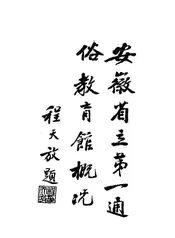 安徽省立第一通
俗教育館概况
程天放題